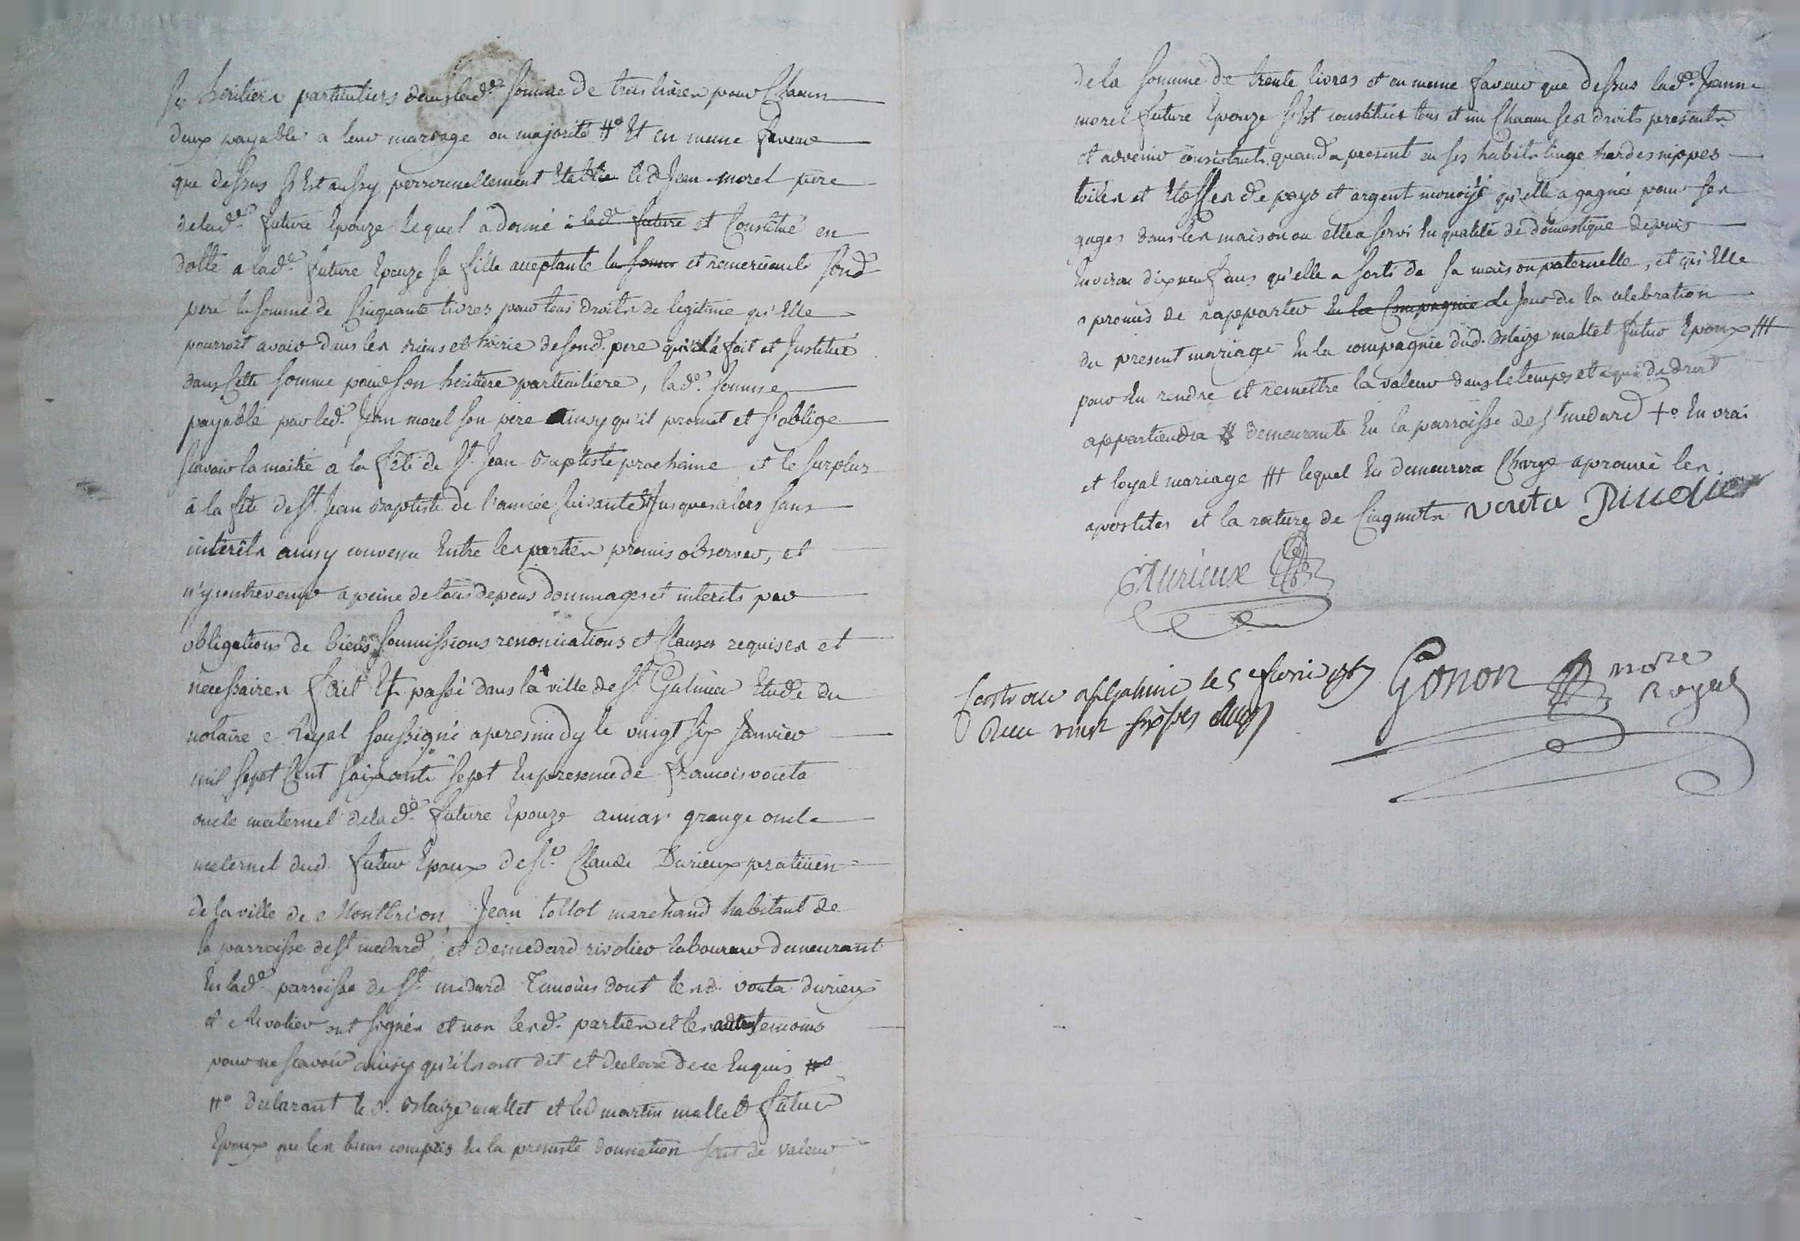 ses heritiers particuliers dans lad.e somme de trois livres pour Chacun
deux payable a leur mariage ou majorité #° Et en meme faveur
que dessus s'Est aussy personnellement Etablie led Jean morel pere
delad.e future Epouze lequel a donné a lad.e future et Constitué en
dotte a lad.e future Epouze sa fille acceptante la somme et remerciante sond.
pere la somme de Cinquante livres pour tous droits de legitime qu'Elle
pourroit avoir dans les biens et hoirie de sond. pere qui l'a fait et Institué
dans Cette somme pour son heritiere particuliere, lad.e somme
payable par led. Jean morel son pere ainsy qu'il promet et s'oblige
scavoir la moitié a la fête de St. Jean Baptiste prochaine et le surplus
à la fête de St. Jean Baptiste de l'année suivante Jusques alors sans
interêts ainsy convenu Entre les parties promis observer, et
n'y contrevenir a peine de tous depens dommages et interets par
obligations de biens soumissions renonciations et Clauses requises et
necessaires fait Et passé dans la ville de St. Galmier Etude du
notaire Royal soussigné apresmidy le vingt six Janvier
mil sept Cent soixante sept En presence de francois vouta
oncle maternel delad.e future Epouze annar grange oncle
maternel dud. futur Epoux de Sr. Claude Durieux praticien
de la ville de Montbrison, Jean tollot marchand habitant de
la parroisse de St medard, et de medard rivolier laboureur demeurant
En lad.e parroisse de St. medard Temoins dont lesd. vouta durieux
et Rivolier ont signés et non lesd. parties et les autres temoins
pour ne scavoir ainsy qu'ils ont dit et declaré de ce Enquis #°
#° declarant le d. Blaize mallet et led martin mallet futur
Epoux que les biens compris En la presente donnation sont de valeur
de la somme de trente livres et en meme faveur que dessus lad.e Jeanne
morel future Epouze s'est constituée tous et un Chacun ses droits presents
et advenir consistants quand a present en ses habits linge hardes nippes
toiles et Etoffes de pays et argent monoyé qu'elle a gagnée pour ses
gages dans les maison ou elle a servi En qualité de domestique depuis
Environ dix neuf ans qu'elle a sorti de sa maison paternelle, et qu'Elle
a promis de rapporter En la Compagnie de Jour de la celebration
du present mariage En la compagnie dud. Blaize mallet futur Epoux ###
pour En rendre et remettre la valeur dans le temps et a que de droit
appartiendra # demeurante En la parroisse de St medard +° En vrai
et loyal mariage ### lequel En demeurera Chargé aprouvé les
apostiles et la rature de Cinq mots vouta Rivolier
Durieux
Controllé a St Galmier le 5 fevrier 1767 Gonon nore
Royal